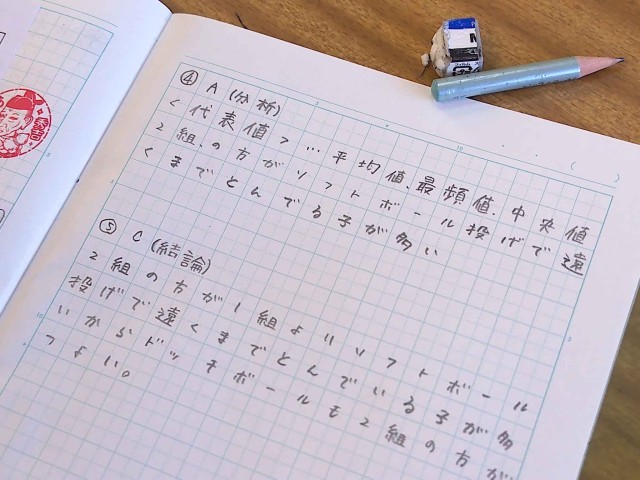 ④ A (分析)
<代表値>…平均値、最頻値、中央値
2組、の方がソフトボール投げで遠
くまでとんでる子が多い
⑤ C (結論)
2組の方が1組よりソフトボール
投げで遠くまでとんでいる子が多
いからドッチボールも2組の方が
つよい。